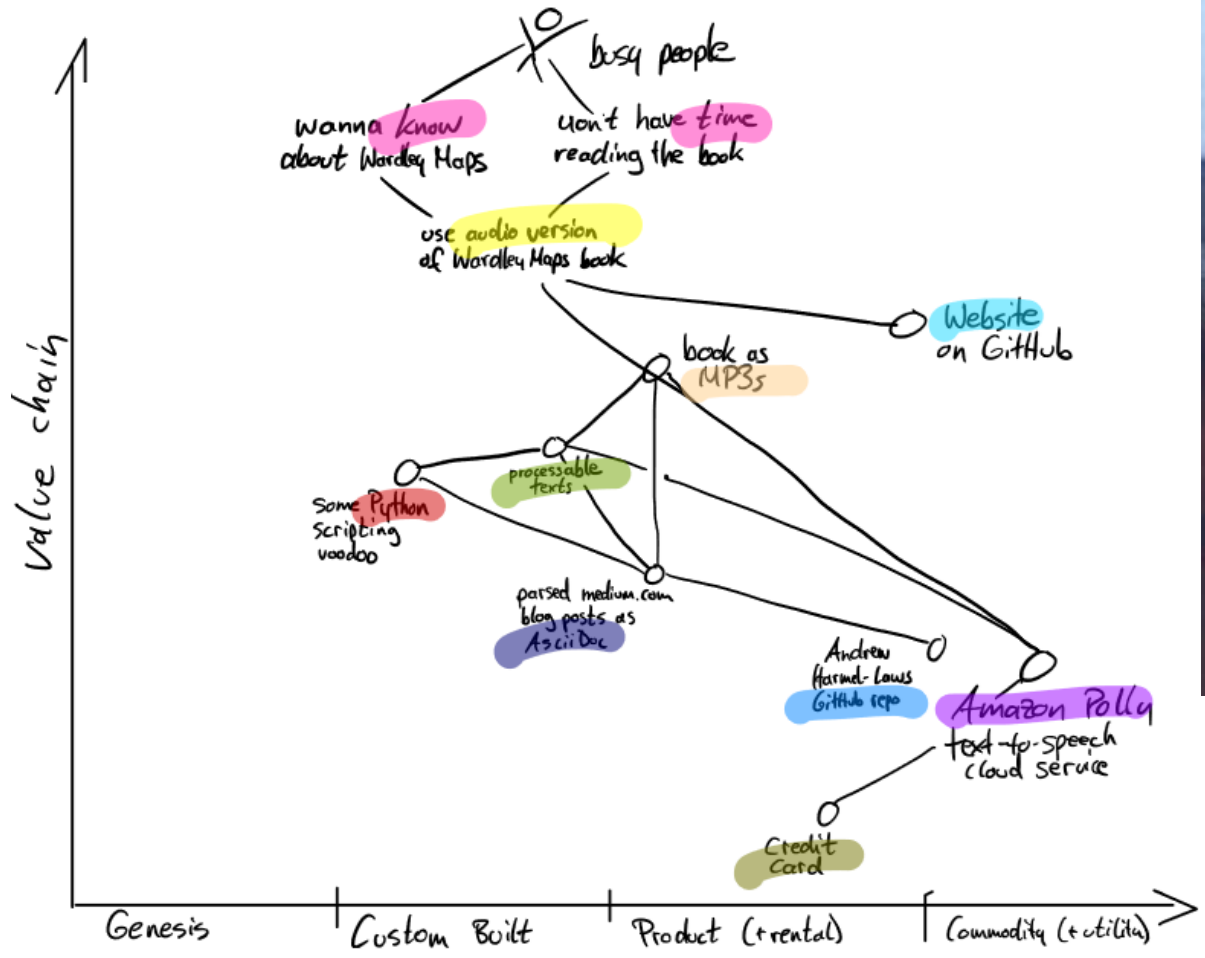 busy people
wanna know
about Wardley Maps
don't have time
reading the book
use audio version
of Wardley Maps book
Website
on GitHub
book as
MP3s
processable
texts
some Python
scripting
voodoo
parsed medium.com
blog posts as
AsciiDoc
Andrew
Harmel-Laws
GitHub repo
Amazon Polly
text-to-speech
cloud service
Credit
Card
value chain
Genesis
Custom Built
Product (+rental)
Commodity (+utility)